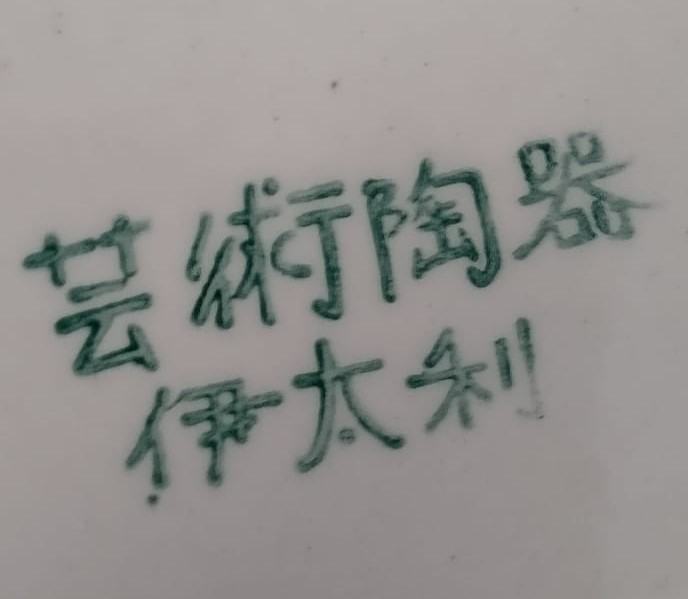 芸術陶器
伊太利